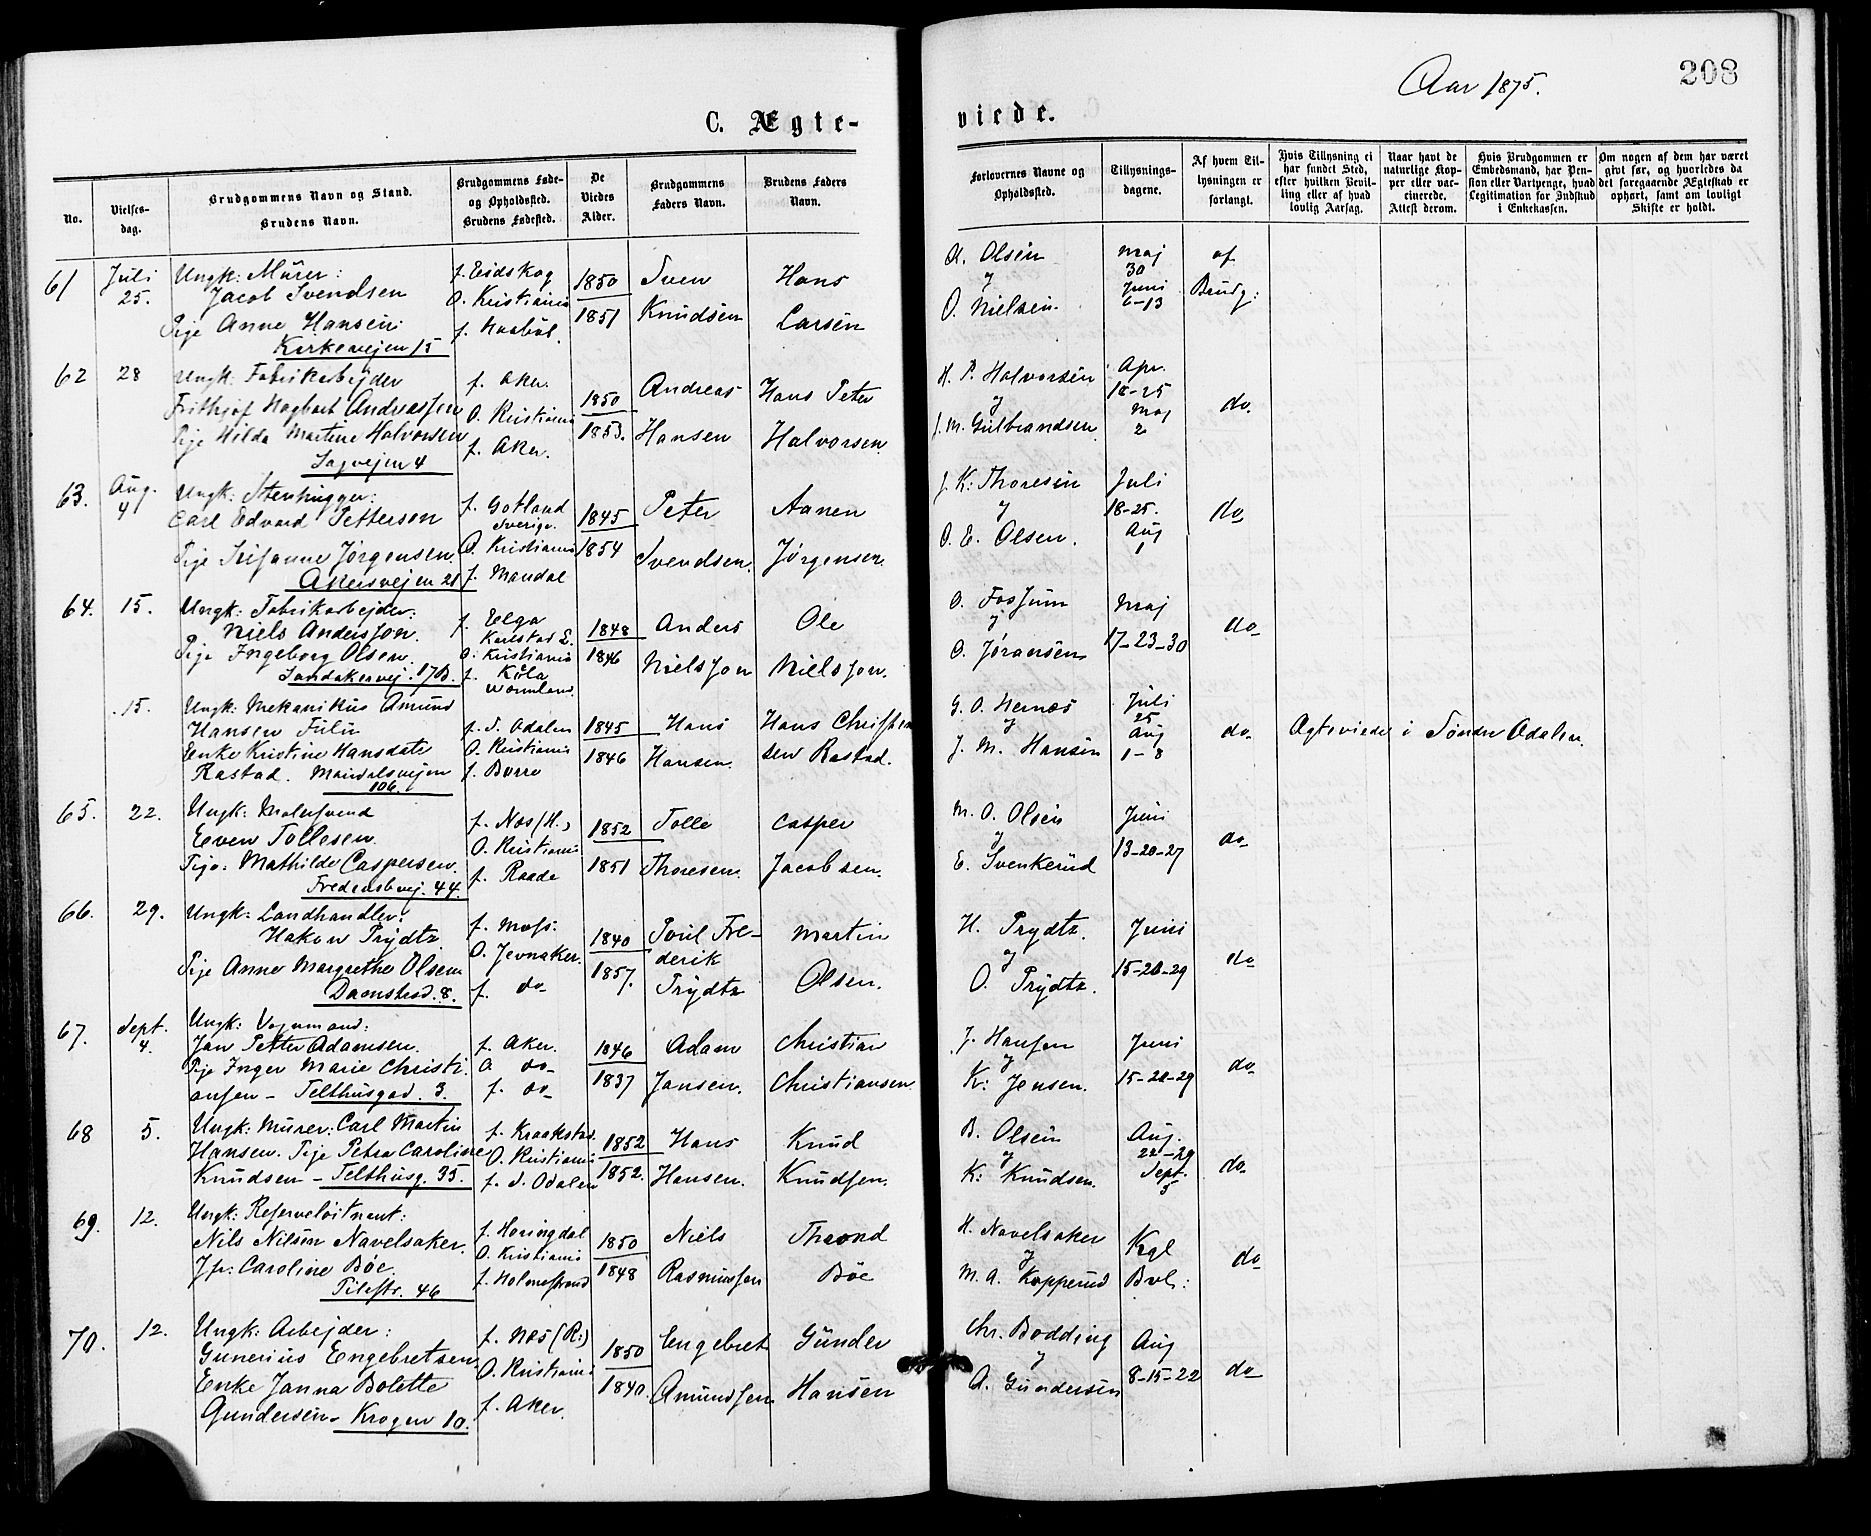 Aar 1875.
208
C. Ægte-
viede.
No.
Vielses-
dag.
Brudgommens Navn og Stand.
Brudens Navn.
Brudgommens Føde-
og Opholdssted.
Brudens Fødested.
De
Viedes
Alder.
Brudgommens
Faders Navn.
Brudens Faders
Navn.
Forlovernes Navne og
Opholdssted.
Tillysnings-
dagene.
Af hvem Til-
lysningen er
forlangt.
Hvis Tillysning ei
har fundet Sted,
efter hvilken Bevil-
ling eller af hvad
lovlig Aarsag.
Naar havt de
naturlige Kop-
per eller vac-
cinerede.
Attest derom.
Hvis Brudgommen er
Embedsmand, har Pen-
sion eller Vartpenge, hvad
Legitimation for Indskud
i Enkekassen.
Om nogen af dem har været
givt før, og hvorledes da
det foregaaende Ægteskab er
ophørt, samt om lovligt
Skifte er holdt.
61 Juli 25. Ungk: Murer:
Jacob Svendsen
Pige Anne Hansen:
Kirkevejen 15
f. Eidskog
O. Kristiania
f.
1850
1851
Sven
Knudsen
Hans
Larsen
A. Olsen
y
O. Nielsen
Maj
30
Juni
6-13
af
Brudg:
62 28 Ungk: Fabrikarbejder
Frithjof Hagbart Andreassen
Pige Hilda Martine Halvorsen
Sagvejen 4
f. Aker.
O. Kristiania
f. Aker.
1850
1853.
Andreas
Hansen
Hans Peter
Halvorsen.
H. P. Halvorsen
y
J. M. Gulbrandsen
Apr.
18-25
Maj
2
do.
63. Aug. 4 Ungk: Stenhugger:
Carl Edvard Petterson
Pige Susanne Jørgensen.
Akersvejen 21
f. Gotland
Sverige.
O. Kristiania
f. Mandal
1845
1854
Peter
Svendsen.
Aanen
Jørgensen.
J. K. Thoresen
y
O. E. Olsen.
Juli
18-25.
Aug
1
do
64. 15. Ungk: Fabrikarbejder:
Niels Andersson.
Pige Ingeborg Olsen.
Sandakervej. 17B.
f. Elga
Karlstad L.
O. Kristiania
f. Köla
Wermland.
1848
1846
Anders
Nielsson
Ole
Nielsson.
O. Fossum
y
O. Jøransen
Maj
17-23-30
do
15. Ungk: Mekanikus Amund
Hansen Fulu
Enke Kristine Hansdatr
Rastad. Maridalsvejen
106.
f. S. Odalen
O. Kristiania
f. Borre
1845
1846
Hans
Hansen.
Hans Christian
sen Rastad.
G. O. Hernæs
y
J. M. Hansen
Juli
25
Aug
1-8
do
Ægteviede i Søndre Odalen.
65. 22. Ungk: Malersvend
Even Tollesen.
Pige: Mathilde Caspersen.
Fredensbvej. 44.
f. Næs (H.)
O. Kristiania
f. Raade
1852
1851
Tolle
Thoresen.
Casper
Jacobsen.
M. O. Olsen
y
E. Svenkerud
Juni
13-20-27
do
66. 29. Ungk: Landhandler:
Hakon Prydtz
Pige Anne Margrethe Olsen
Damstred. 8.
f. Moss.
O. Jevnaker.
f. do
1840
1857.
Poul Fre-
derik
Prydtz
Martin
Olsen.
H. Prydtz
y
O. Prydtz.
Juni
15-20-29
do
67. Sept. 4. Ungk: Vognmand:
Jan Petter Adamsen.
Pige Inger Marie Christi
ansen - Telthusgad. 3.
f. Aker.
O do
f. do
1846
1837
Adam
Jansen.
Christian
Christiansen
J. Hansen
y
K: Jensen.
Juni
15-20-29
do
68 5. Ungk: Murer: Carl Martin
Hansen. Pige Petra Caroline
Knudsen - Telthusg. 35.
f. Kraakstad.
O. Kristiania
f. S. Odalen
1852
1852.
Hans
Hansen.
Knud
Knudsen.
B. Olsen
y
K: Knudsen.
Aug.
22-29
Sept.
5
do
69. 12. Ungk: Reserveløitnant:
Nils Nilsen Navelsaker.
Jfr: Caroline Bøe.
Pilestr. 46
f. Horingdal
O. Kristiania
f. Holmestrand
1850
1848
Niels
Rasmussen
Thrond
Bøe
H. Navelsaker
y
M. A. Kopperud
Kgl
Bvl:
do
70. 12. Ungk: Arbejder:
Gunerius Engebretsen
Enke Janna Bolette
Gundersen - Krogen 10.
f. Næs (R:)
O. Kristiania
f. Aker.
1850
1840.
Engebret
Amundsen
Gunder
Hansen
Chr. Bodding
y
A. Gundersen
Aug
8-15-22
do